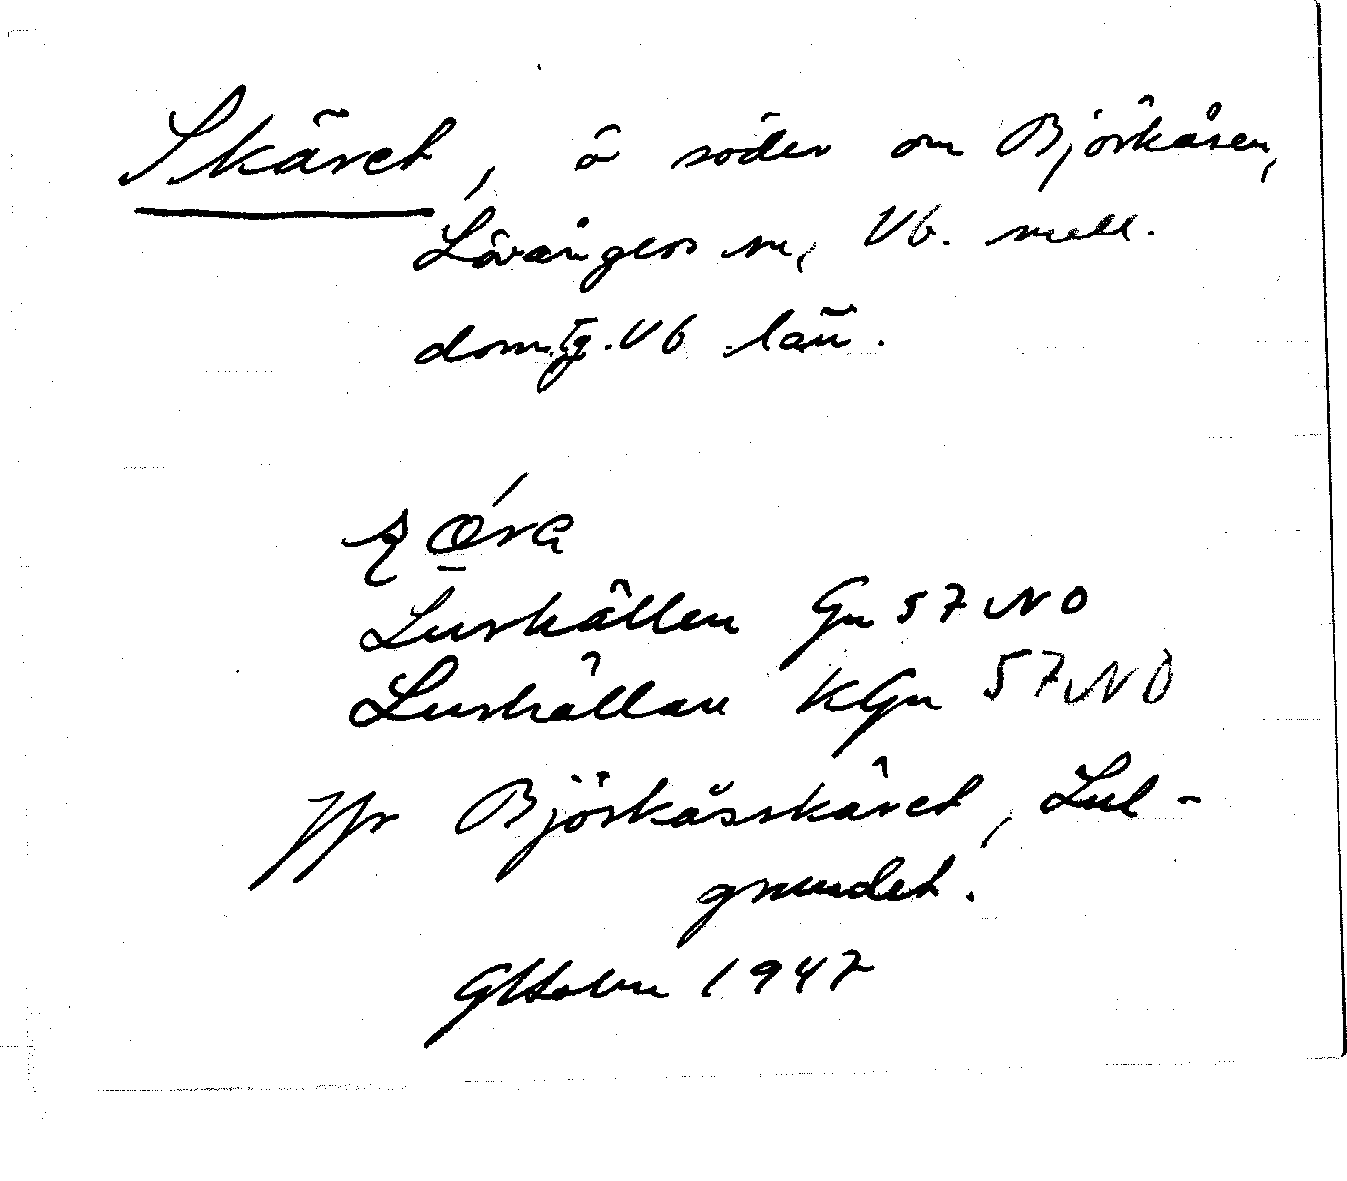 Skäret, ö söder om Björkåsen,
Lövångers sn, Vb. mell.
domsg. Vb län.
Lushällen Gn 57 NO
Lushällan KGn 57 NO
Jfr Björkåsskäret, Lul-
grundet.
GHolm 1947